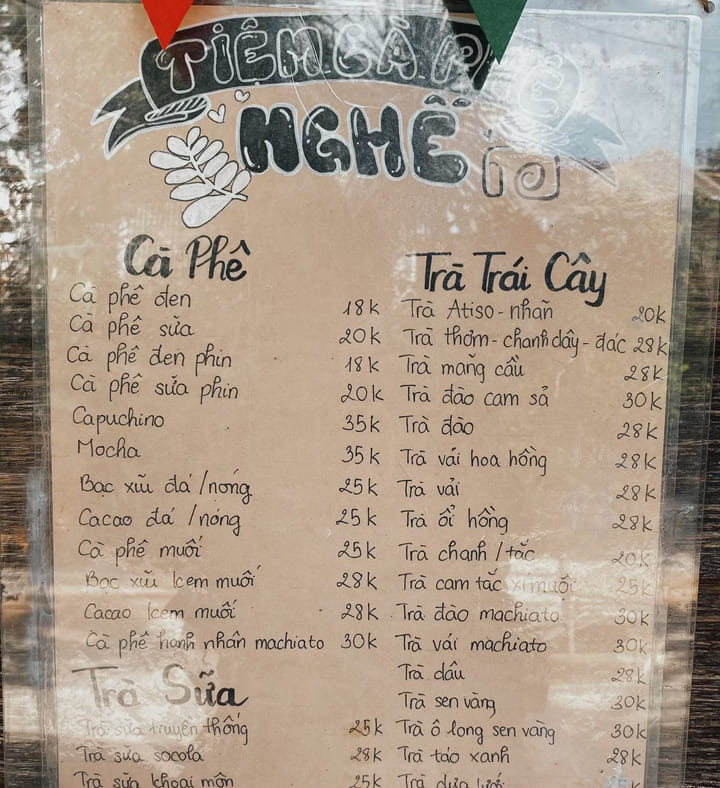 TIỆM CÀ PHÊ
NGHẾ
Cà Phê
Cà phê đen 18K
Cà phê sữa 20K
Cà phê đen phin 18K
Cà phê sữa phin 20K
Capuchino 35K
Mocha 35K
Bạc xĩu đá/nóng 25K
Cacao đá/nóng 25K
Cà phê muối 25K
Bạc xĩu kem muối 28K
Cacao kem muối 28K
Cà phê hạnh nhân machiato 30K
Trà Sữa
Trà sữa truyền thống 25K
Trà sữa socola 28K
Trà sữa khoai môn 25K
Trà Trái Cây
Trà Atiso - nhãn 20K
Trà thơm - chanh dây - đác 28K
Trà mãng cầu 28K
Trà đào cam sả 30K
Trà đào 28K
Trà vải hoa hồng 28K
Trà vải 28K
Trà ổi hồng 28K
Trà chanh/tắc 20K
Trà cam tắc xí muội 25K
Trà đào machiato 30K
Trà vải machiato 30K
Trà dâu 28K
Trà sen vàng 30K
Trà ô long sen vàng 30K
Trà táo xanh 28K
Trà dưa lưới